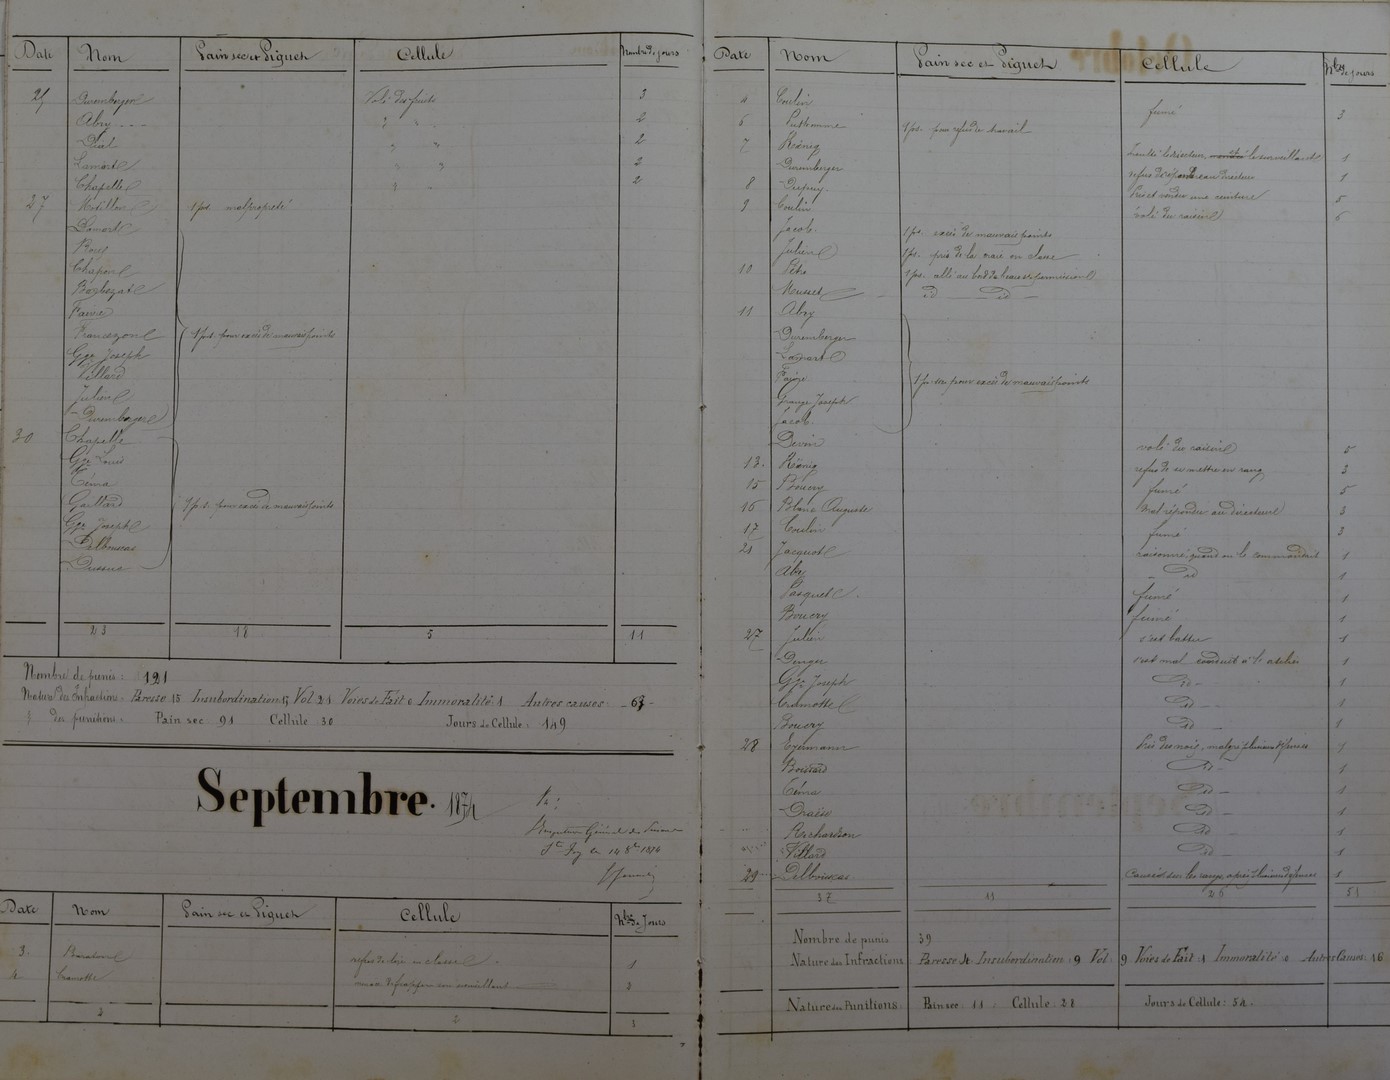 Date Nom Pain sec et Piquet Cellule Nombre de jours
25 Duremberger Volé des fruits 3
Abry " " 2
2
Lamorte " " 2
Chapelle " " 2
27 1 jr. malpropreté
Lamorte
Bouy
Chapon
Barbezat
Faure
Francezon 1 jr. pour excès de mauvais points
Gge Joseph
Villard
Julien
Duremberger
30 Chapelle
Gge Louis
Céma
Gaillard 1 jr. pour excès de mauvais points
Gge Joseph
Delbouscas
23 18 5 11
Nombre de punis : 121
Nature des Infractions : Paresse 15 Insubordination 15 Vol 21 Voies de Fait 0 Immoralité 1 Autres causes : 67
des punitions : Pain sec 91 Cellule 30 Jours de Cellule : 149
Septembre. 1874
Vu :
L'Inspecteur Général des Prisons
Ste Foy le 14 8bre 1874
Date Nom Pain sec et Piquet Cellule Nbre de Jours
3. refus de lire en classe. 1
4 Cramotte 2
2 2 3
Date Nom Pain sec et Piquet Cellule Nbre de jours
4 Coulin fumé 3
6 Prudhomme 1 jr. pour refus de travail
7 Rénig Insulté le directeur, le surveillant 1
Duremberger refus de répondre au directeur 1
8 Dupuy. une ceinture 5
9 Coulin volé du raisin 6
Jacob 1 jr. excès de mauvais points
Julien 1 jr. pris de la craie en classe
10 Pétre 1 jr. allé au bord de l'eau sans permission
Musset id id
11 Abry
Duremberger
Lamorte
Fajon 1 jr. sec pour excès de mauvais points
Grange Joseph
Jacob.
Devoir volé du raisin 5
13. Rénig refus de se mettre en rang 3
15 Bouery fumé 5
16 Blanc Auguste Mal répondu au directeur 3
17 Coulin fumé 3
21 Jacquot raisonné quand on le commandait 1
Abry id 1
Pasquet. fumé 1
Bouery fumé 1
27 Julien s'est battu 1
Denger s'est mal conduit à l'atelier 1
Gge Joseph id 1
Cramotte id 1
Bouery id 1
28 Egermann Pris des noix, malgré plusieurs défenses 1
Boissard id 1
Céma id 1
Draëse id 1
Richardson id 1
Villard id 1
29 Delbouscas Causé sur les rangs après plusieurs défenses 1
37 11 26 51
Nombre de punis 39
Nature des Infractions Paresse 4 Insubordination : 9 Vol 9 Voies de Fait : 1 Immoralité 0 Autres Causes : 16
Nature des Punitions. Pain sec : 11 Cellule : 28 Jours de Cellule : 54.